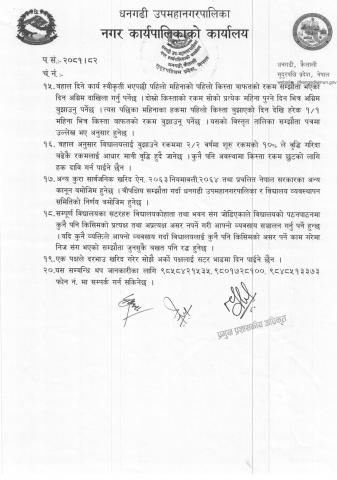 धनगढी उपमहानगरपालिका
नगर कार्यपालिकाको कार्यालय
धनगढी, कैलाली
सुदूरपश्चिम प्रदेश, नेपाल
प सं.-२०८१।८२
चं नं.-
१५. बहाल दिने कार्य स्वीकृती भएपछी पहिलो महिनाको पहिलो किस्ता बाफतको रकम सम्झौता भएको
दिन अग्रिम दाखिला गर्नु पर्नेछ । दोस्रो किस्ताको रकम सोको प्रत्येक महिना पुग्ने दिन भित्र अग्रिम
बुझाउनु पर्नेछ । त्यस पछिका महिनाका हकमा पहिलो किस्ता बुझाएको दिन देखि हरेक १/१
महिना भित्र किस्ता बाफतको रकम बुझाउनु पर्नेछ । यसको विस्तृत तालिका सम्झौता पत्रमा
उल्लेख भए अनुसार हुनेछ ।
१६. बहाल अनुसार विद्यालयलाई बुझाउने रकममा २/२ वर्षमा शुरु रकमको १०% ले बृद्धि गरिदा
बढेकै रकमलाई आधार मानी बृद्धि हुदै जानेछ । कुनै पनि अवस्थामा किस्ता रकम छुटको लागि
हक दाबि गर्न पाईने छैन ।
१७. अन्य कुरा सार्वजनिक खरिद ऐन, २०६३ नियमावली २०६४ तथा प्रचलित नेपाल सरकारका अन्य
कानून बमोजिम हुनेछ । बीपक्षिय सम्झौता गर्दा धनगढी उपमहानगरपालिका र विद्यालय व्यवस्थापन
समितिको निर्णय बमोजिम हुनेछ ।
१८. सम्पूर्ण विद्यालयका सटरहरु विद्यालयको हाता तथा भवन संग जोडिएकाले विद्यालयको पठनपाठनमा
कुनै पनि किसिमको प्रत्यक्ष तथा अप्रत्यक्ष असर नपर्ने गरी आफ्नो व्यवसाय सञ्चालन गर्नु पर्ने हुन्छ
। यदि कुनै व्यक्तिले आफ्नो व्यवसाय गर्दा विद्यालयलाई कुनै पनि किसिमको असर पर्ने काम गरेमा
निज संग भएको सम्झौता जुनसुकै बखत पनि रद्ध हुनेछ ।
१९. एक पक्षले दरभाउ खरिद गरेर सोझै अर्को पक्षलाई सटर भाडामा दिन पाईने छैन ।
२०. यस सम्बन्धि थप जानकारीका लागि ९८५८४२१५३५, ९८०१७२८१००, ९८४८५१३३७३
फोन नं. मा सम्पर्क गर्न सकिनेछ ।
प्रमुख प्रशासकीय अधिकृत